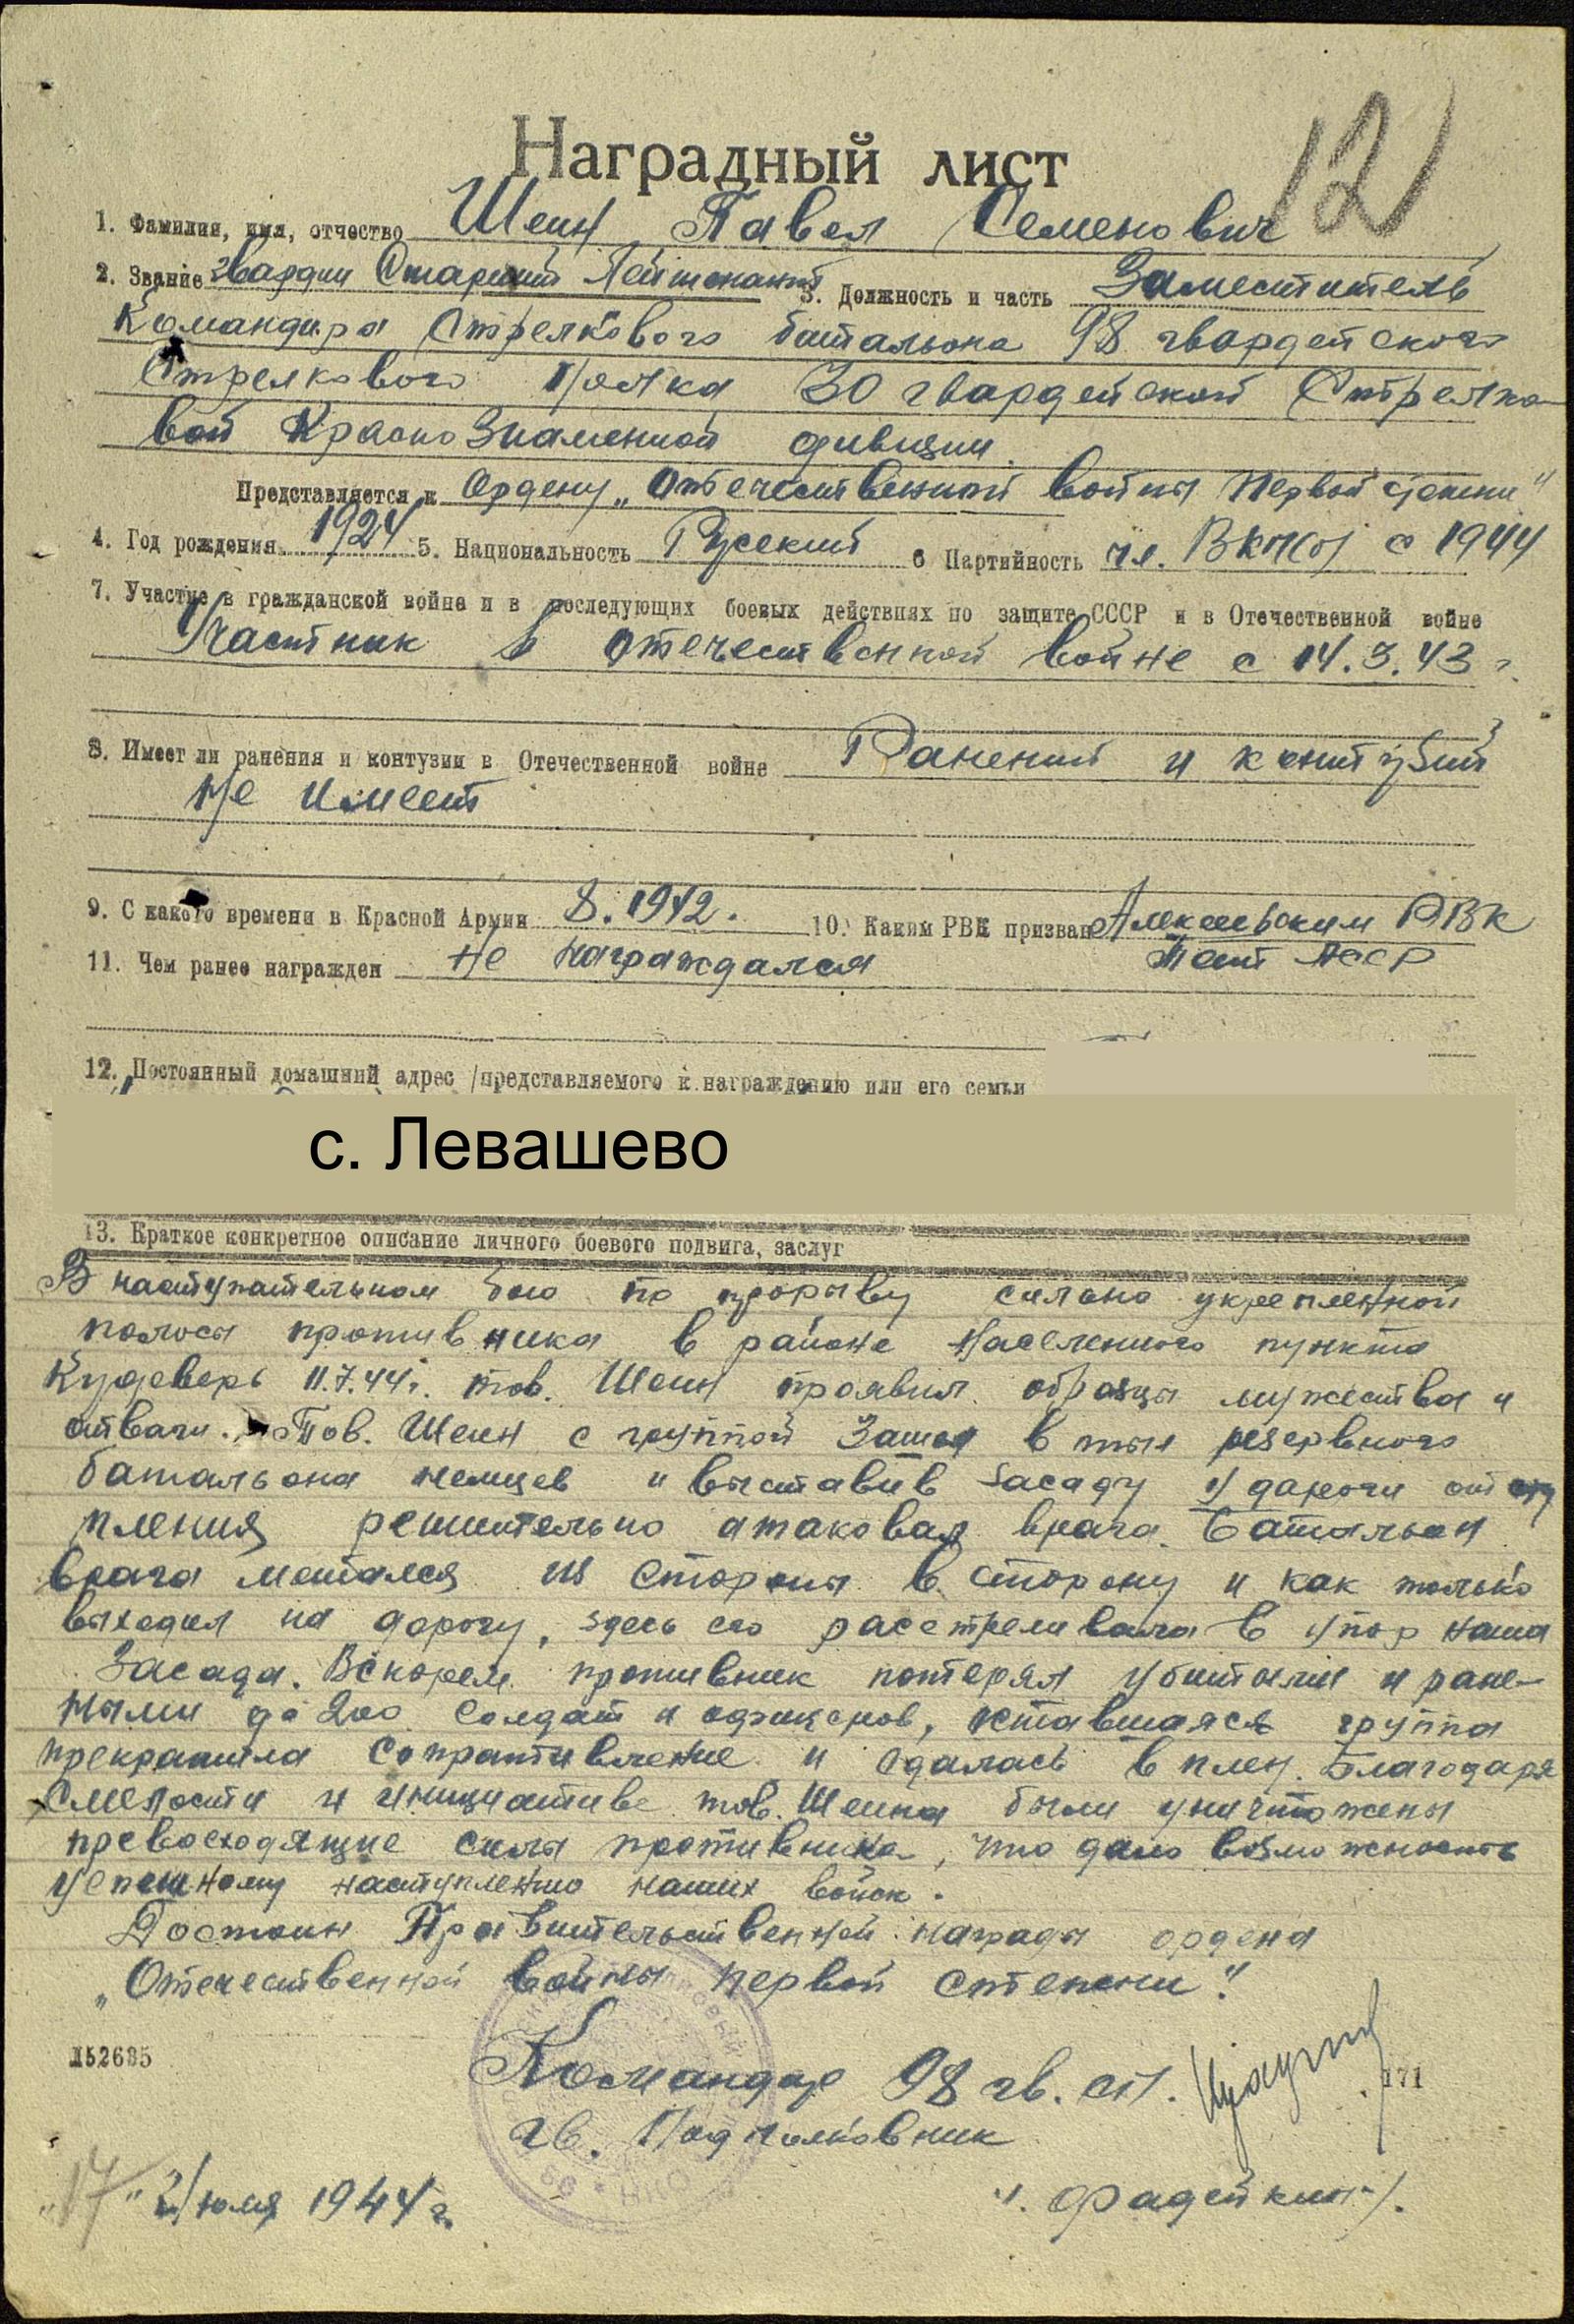 12
Наградный лист
1. Фамилия, имя, отчество Шеин Павел Семенович
2. Звание Гвардии Старший Лейтенант 3. Должность и часть Заместитель
Командира Стрелкового батальона 98 гвардейского
Стрелкового Полка 30 гвардейской Стрелко-
вой Краснознаменной дивизии.
Представляется к Ордену „Отечественной войны Первой степени"
4. Год рождения 1924 5. Национальность Русский 6 Партийность чл. ВКП(б) с 1944
7. Участие в гражданской войне и в последующих боевых действиях по защите СССР и в Отечественной войне
Участник в отечественной войне с 14.3.43 г.
8. Имеет ли ранения и контузии в Отечественной войне Ранений и контузий
не имеет
9. С какого времени в Красной Армии 8.1942. 10. Каким РВК призван Алексеевским РВК
11. Чем ранее награжден не награждался Тат АССР
12. Постоянный домашний адрес /представляемого к награждению или его семьи
с. Левашево
13. Краткое конкретное описание личного боевого подвига, заслуг
В наступательном бою по прорыву сильно укрепленной
полосы противника в районе Населенного пункта
Кудеверь 11.7.44г. тов. Шеин проявил образцы мужества и
отваги. Тов. Шеин с группой Зашел в тыл резервного
батальона немцев и выставив Засаду у дороги отсту
пления решительно атаковал врага. Батальон
врага метался из стороны в сторону и как только
выходил на дорогу, здесь его расстреливала в упор наша
Засада. Вскорем противник потерял убитыми и ране-
ными до 200 солдат и офицеров, оставшаяся группа
прекратила сопративление и сдалась в плен. Благодаря
смелости и инициативе тов. Шеина были уничтожены
превосходящие силы противника, что дало возможность
успешному наступлению наших войск.
Достоин Правительственной награды ордена
„Отечественной войны первой степени".
Л52635
Командир 98 гв. сп.
171
гв. Подполковник
"17" Июля 1944 г.
/. Фадейкин /.